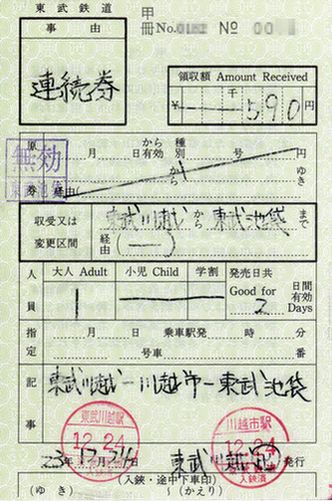 東武鉄道
甲
冊No.0182 Nº 00
事由
連続券
領収額 Amount Received
千
¥ 590 円
原券
月 日から有効 種別 号 円
経由( ) から ゆき
無効
東武池袋
収受又は変更区間
東武川越 から 東武池袋 まで
経由 (—)
人員
大人 Adult 小児 Child 学割
1
発売日共
Good for 2 日間有効 Days
指定
月 日 乗車駅発 時 分
号車 番
記事
東武川越―川越市―東武池袋
東武川越駅
12.24
川越市駅
12.24
入鋏済
23年12月24日 東武川越 発行
(入鋏・途中下車印)
(ゆき) (かえり)